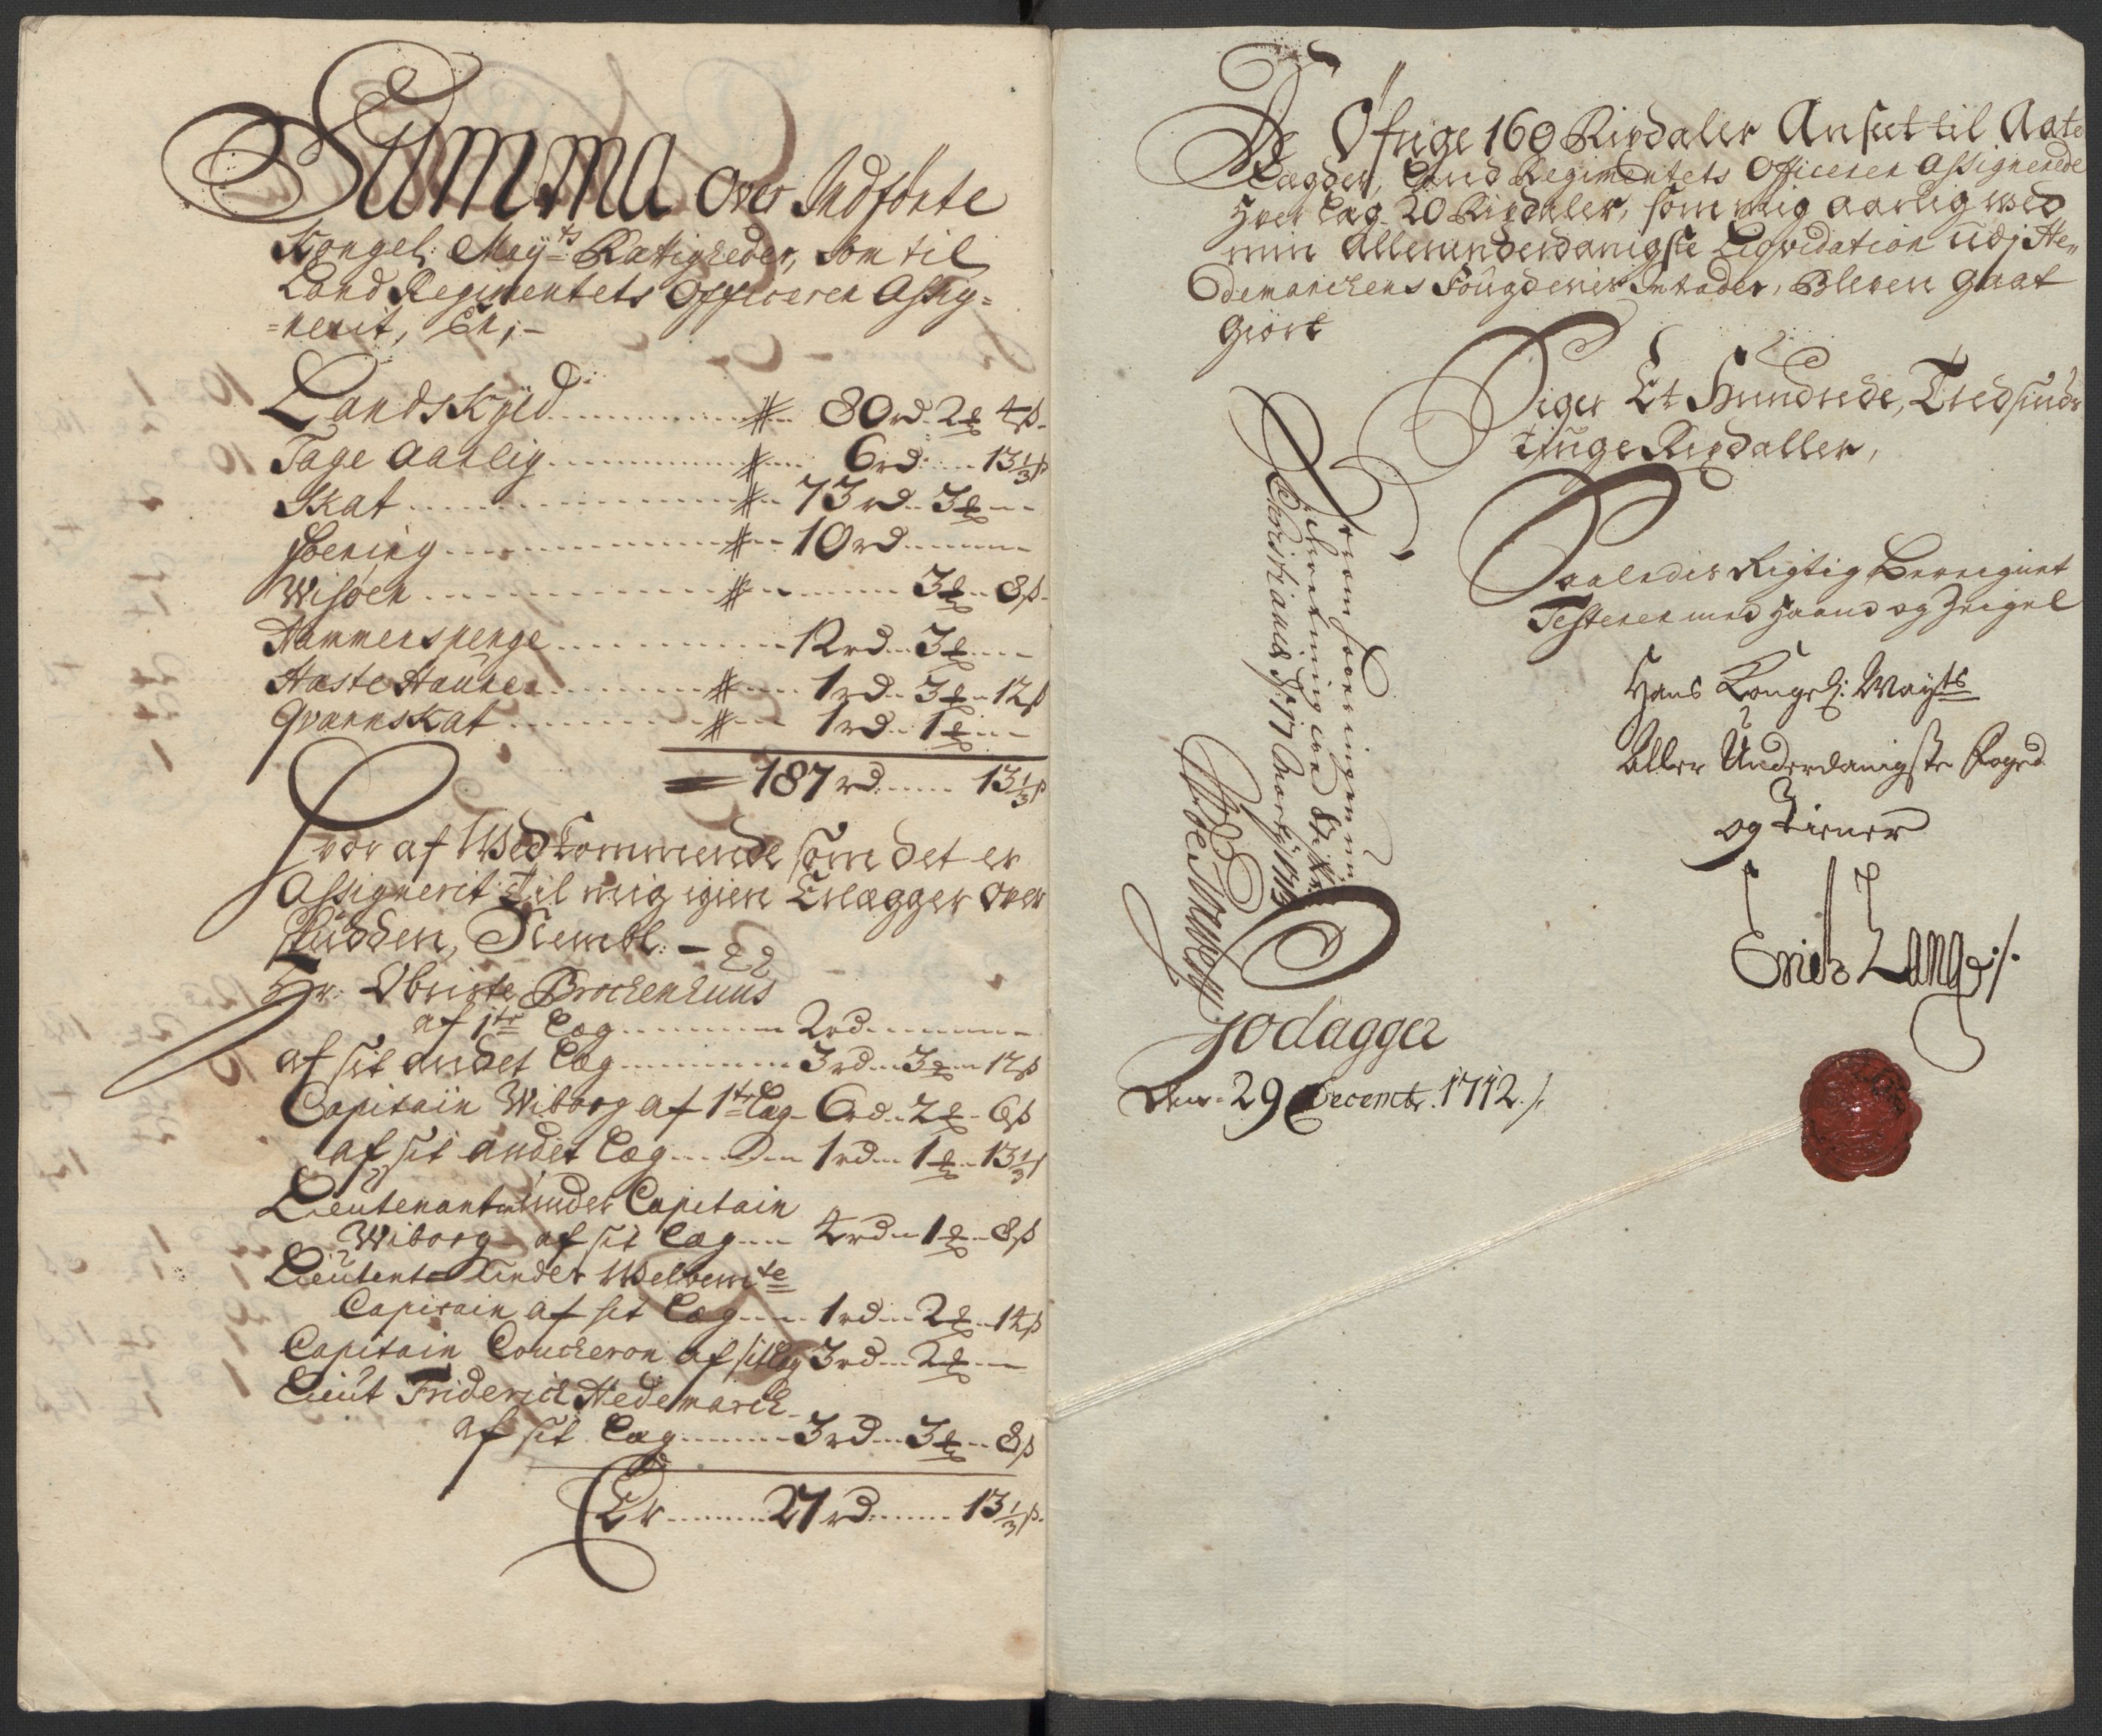 Summa over Indførte
Kongel: May:ts Rættigheder, som til
Land Regimentets Officerer Assig=
=nerit, Er;-
Landskÿld ... # .. 80 rd. 2 # 4 β.
Tage Aarlig ... # ... 6 rd. ... 13 1/3 β
Skat ... # .. 73 rd .. 3 # ---
Foering ... # .. 10 rd ...
Wisøer ... # ... 3 # .. 8 β.
Hammerspenge ... 12 rd .. 3 # ...
Hæste Haufre ... # ... 1 rd .. 3 # .. 12 β
Qvernskat ... # ... 1 rd .. 1 # ...
= 187 rd ... 13 1/3 β
Hvor af Wedkommende som det er
Assignerit til mig igien Erlægger over
skudden, Nembl: -
Hr: Obriste Brockenhuus
af 1te Læg ... 2 rd ...
af sit andet Læg ... 3 rd .. 3 # .. 12 β
Capitain Wiborg af 1te Læg .. 6 rd .. 2 # .. 6 β
af sit andet Læg ... 1 rd .. 1 # .. 13 1/3 β
Lieutenant under Capitain
Wiborg af sit Læg ... 4 rd .. 1 # .. 8 β
Lieutent under Welbemte
Capitain af sit Læg ... 1 rd .. 2 # .. 14 β
Capitain Coucheron af sit Læg 3 rd .. 2 # ---
Lieut Friderich Hedemarck
af sit Læg ... 3 rd .. 3 # .. 8 β
Er ... 27 rd ... 13 1/3 β.
De Øfrige 160 Rixdaler Ansat til Aate
Lægder, Land Regimentets Officerer Assignerede
Hver Læg 20 Rixdaler, som mig aarlig wed
min Allerunderdanigste Liqvidation udj He„
demarckens Fougderies Intrader, Bleven gaat
giort
Siger Et Hundrede, Tredsinds
tiuge Rixdaller,
Saaledis Rigtig Beregnet
Testerer med Haand og Zeigel
Hans Kongel: Mayts
Aller Underdanigste Foged
og Tiener
Erich Lange ./.
Jodagger
Den 29 Decembr. 1712 ./.